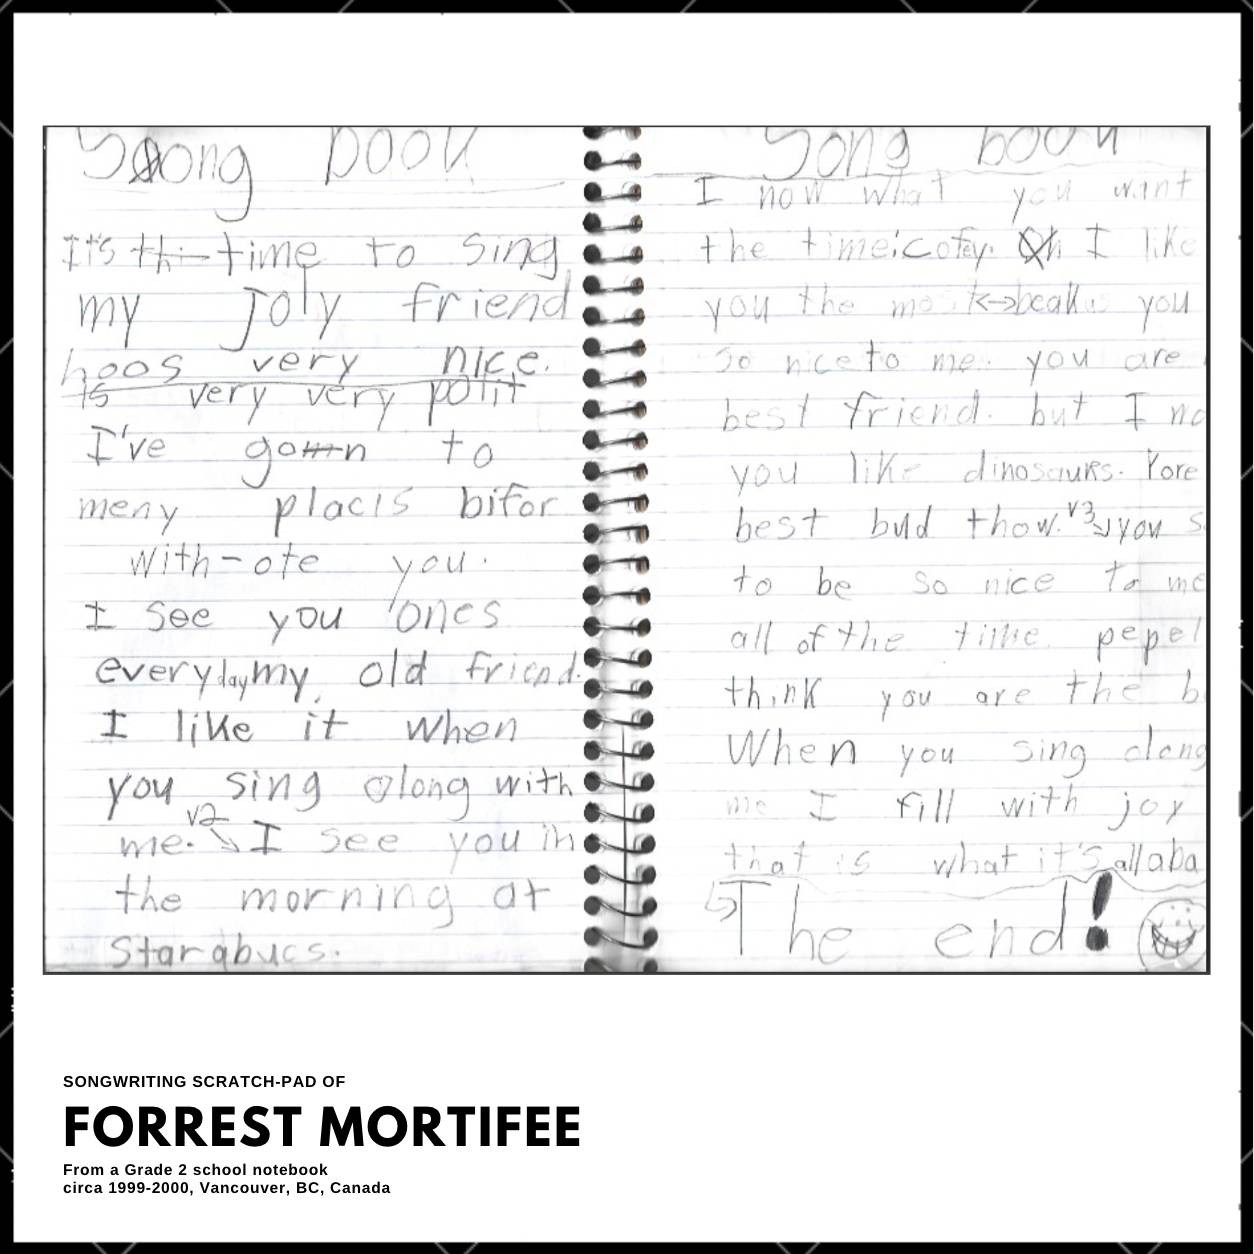 Song book
It's th time to sing
my joly friend
hoos very nice.
is very very polit
I've gon to
meny placis bifor
with-ote you.
I see you ones
everyday my old friend.
I like it when
you sing along with
me. v2 I see you in
the morning at
Starabucs.
Song book
I now what you want
the time: cofey. Oh I like
you the most beakus you
so nice to me. you are
best friend. but I no
you like dinosaurs. Yore
best bud thow. v3 you s
to be so nice to me
all of the time. pepel
think you are the b
When you sing along
me I fill with joy
that is what it's all aba
The end!
SONGWRITING SCRATCH-PAD OF
FORREST MORTIFEE
From a Grade 2 school notebook
circa 1999-2000, Vancouver, BC, Canada